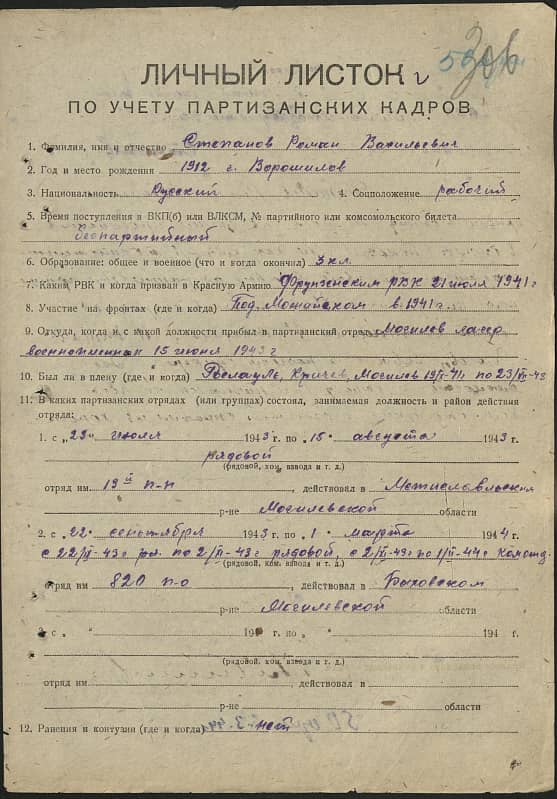 306
ЛИЧНЫЙ ЛИСТОК
ПО УЧЕТУ ПАРТИЗАНСКИХ КАДРОВ
1. Фамилия, имя и отчество Степанов Роман Васильевич
2. Год и место рождения 1912 г. Ворошилов
3. Национальность Русский 4. Соцположение рабочий
5. Время поступления в ВКП(б) или ВЛКСМ, № партийного или комсомольского билета
беспартийный
6. Образование: общее и военное (что и когда окончил) 3 кл.
7. Каким РВК и когда призван в Красную Армию Фрунзенским РВК 21 июля 1941 г
8. Участие на фронтах (где и когда) Под Можайском в 1941 г.
9. Откуда, когда и с какой должности прибыл в партизанский отряд Могилев лагер
военнопленных 15 июня 1943 г
10. Был ли в плену (где и когда) Кричев, Могилев
11. В каких партизанских отрядах (или группах) состоял, занимаемая должность и район действия
отряда:
1. с „23" июля 1943 г. по „15" августа 1943 г.
рядовой
(рядовой, ком. взвода и т. д.)
отряд им. 19й п-п, действовал в Мстиславльском
р-не Могилевской области
2. с „22" сентября 1943 г. по „1" марта 1944 г.
рядовой, с
(рядовой, ком. взвода и т. д.)
отряд им 820 п-о, действовал в Быховском
р-не Могилевской области
3 с „ " 194 г. по „ " 194 г.
(рядовой, ком. взвода и т. д.)
отряд им. , действовал в
р-не области
12. Ранения и контузии (где и когда) нет